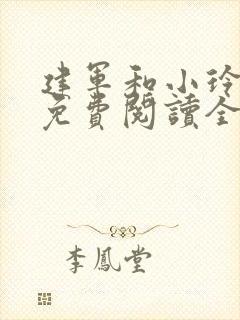 建軍和小玲
免費閱讀全
李鳳堂